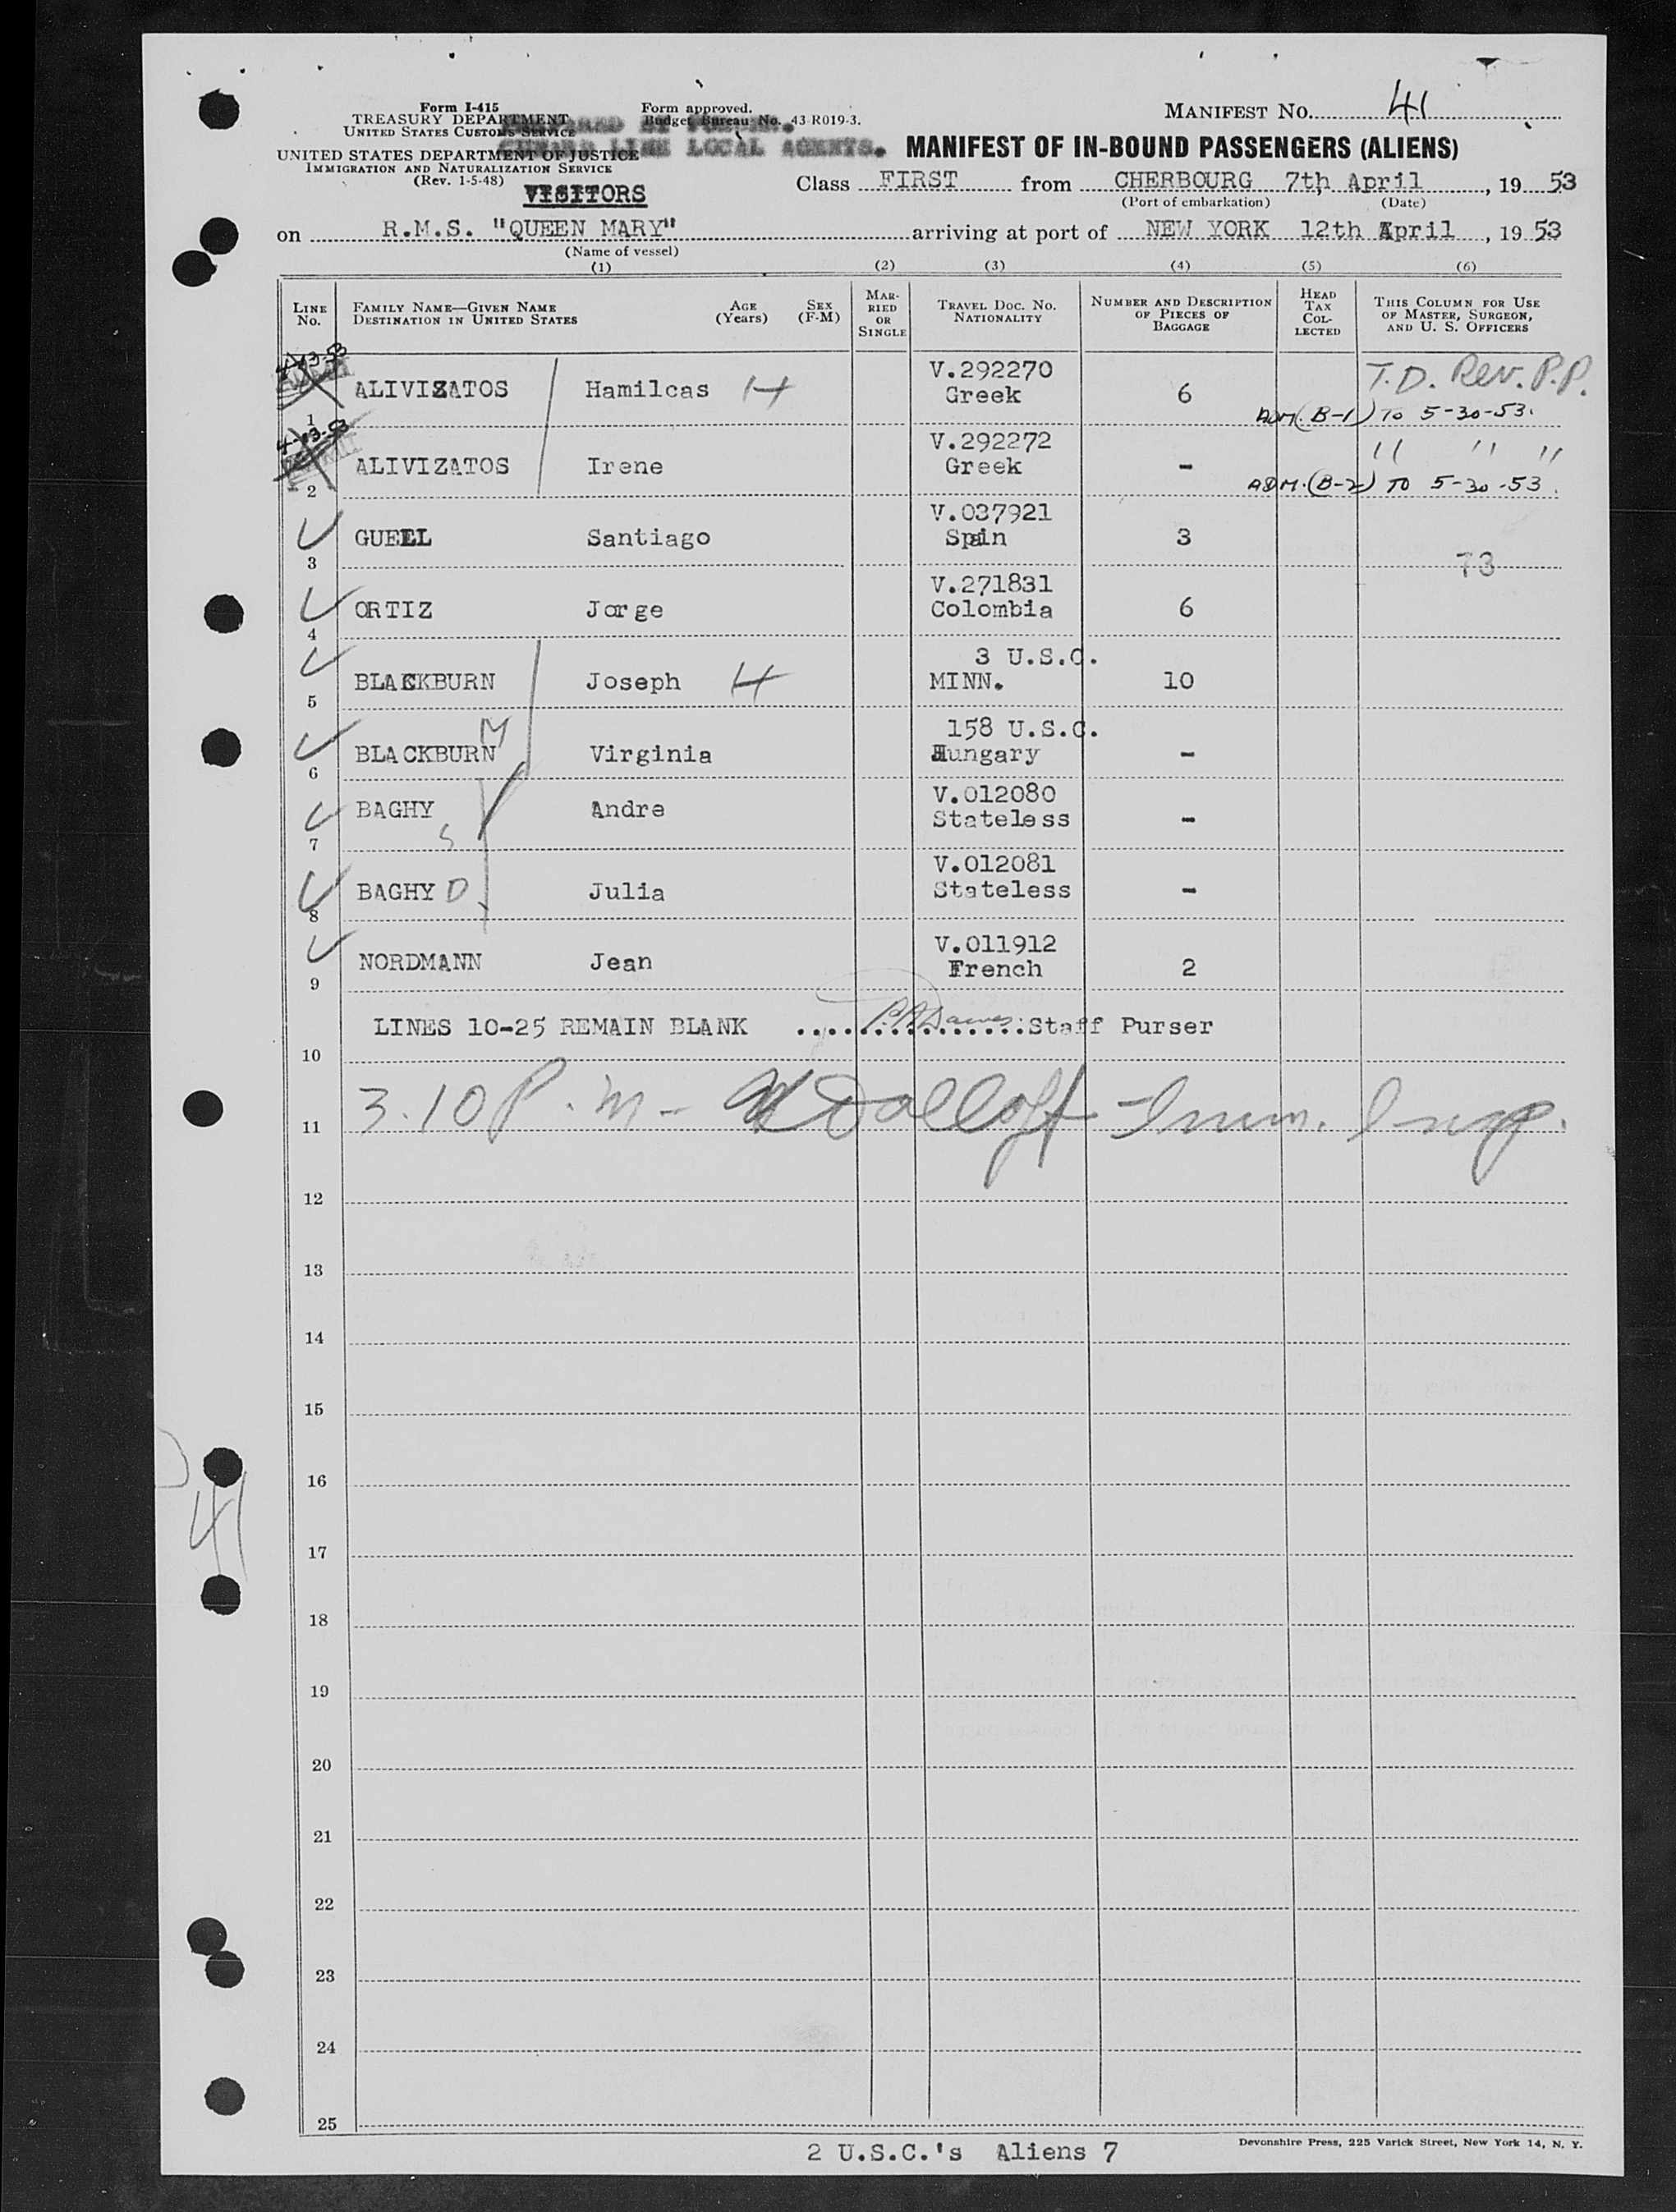 Form I-415
TREASURY DEPARTMENT
UNITED STATES CUSTOMS SERVICE
UNITED STATES DEPARTMENT OF JUSTICE
IMMIGRATION AND NATURALIZATION SERVICE
(Rev. 1-5-48)
Form approved.
Budget Bureau No. 43-R019-3.
LINE LOCAL AGENTS.
VISITORS
MANIFEST NO. 41
MANIFEST OF IN-BOUND PASSENGERS (ALIENS)
Class FIRST from CHERBOURG 7th April, 1953
(Port of embarkation) (Date)
on R.M.S. "QUEEN MARY" arriving at port of NEW YORK 12th April, 1953
(Name of vessel)
(1) (2) (3) (4) (5) (6)
LINE No. FAMILY NAME—GIVEN NAME DESTINATION IN UNITED STATES AGE (Years) SEX (F-M) MARRIED OR SINGLE TRAVEL DOC. NO. NATIONALITY NUMBER AND DESCRIPTION OF PIECES OF BAGGAGE HEAD TAX COLLECTED THIS COLUMN FOR USE OF MASTER, SURGEON, AND U. S. OFFICERS
4-13-53
1 ALIVIZATOS Hamilcas H V.292270 Greek 6 T.D. Rev. P.P.
ADM. (B-1) TO 5-30-53.
4-13-53
2 ALIVIZATOS Irene V.292272 Greek - " " "
ADM. (B-2) TO 5-30-53.
3 GUELL Santiago V.037921 Spain 3
73
4 ORTIZ Jorge V.271831 Colombia 6
5 BLACKBURN Joseph H 3 U.S.C. MINN. 10
6 BLACKBURN M Virginia 158 U.S.C. Hungary -
7 BAGHY S Andre V.012080 Stateless -
8 BAGHY D Julia V.012081 Stateless -
9 NORDMANN Jean V.011912 French 2
LINES 10-25 REMAIN BLANK ................Staff Purser
10
11 3.10 P.m - Imm. Insp.
12
13
14
15
16
41
17
18
19
20
21
22
23
24
25
2 U.S.C.'s Aliens 7
Devonshire Press, 225 Varick Street, New York 14, N. Y.